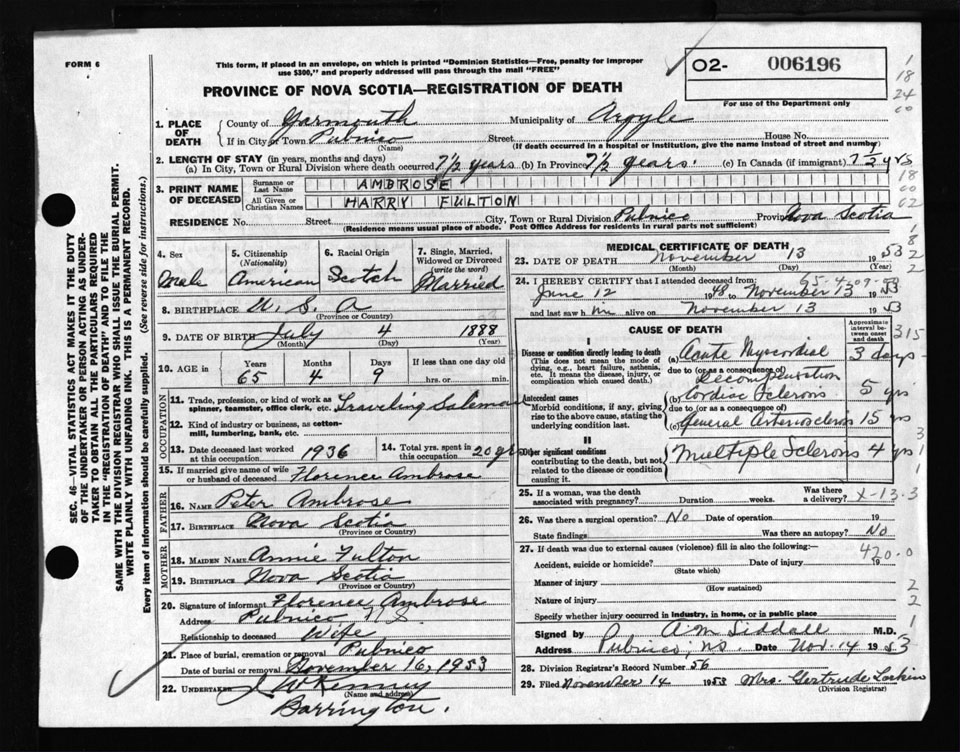 FORM 6
This form, if placed in an envelope, on which is printed "Dominion Statistics—Free, penalty for improper
use $300," and properly addressed will pass through the mail "FREE"
PROVINCE OF NOVA SCOTIA—REGISTRATION OF DEATH
O2- 006196
For use of the Department only
1. PLACE OF DEATH
County of Yarmouth Municipality of Argyle
If in City or Town Pubnico Street House No.
(Name) (If death occurred in a hospital or institution, give the name instead of street and number)
2. LENGTH OF STAY (in years, months and days)
(a) In City, Town or Rural Division where death occurred 7½ years (b) In Province 7½ years. (c) In Canada (if immigrant) 7½ yrs
3. PRINT NAME OF DECEASED
Surname or Last Name AMBROSE
All Given or Christian Names HARRY FULTON
RESIDENCE No. Street City, Town or Rural Division Pubnico Province Nova Scotia
(Residence means usual place of abode. Post Office Address for residents in rural parts not sufficient)
4. Sex
Male
5. Citizenship
(Nationality)
American
6. Racial Origin
Scotch
7. Single, Married, Widowed or Divorced
(write the word)
Married
8. BIRTHPLACE U. S. A
(Province or Country)
9. DATE OF BIRTH July 4 1888
(Month) (Day) (Year)
10. AGE in Years Months Days If less than one day old
65 4 9 hrs. or min.
OCCUPATION
11. Trade, profession, or kind of work as
spinner, teamster, office clerk, etc. Traveling Salesman
12. Kind of industry or business, as cotton-
mill, lumbering, bank, etc.
13. Date deceased last worked at this occupation 1936
14. Total yrs. spent in this occupation 20 yrs
15. If married give name of wife or husband of deceased Florence Ambrose
FATHER
16. NAME Peter Ambrose
17. BIRTHPLACE Nova Scotia
(Province or Country)
MOTHER
18. MAIDEN NAME Annie Fulton
19. BIRTHPLACE Nova Scotia
(Province or Country)
20. Signature of informant Florence Ambrose
Address Pubnico N.S.
Relationship to deceased Wife
21. Place of burial, cremation or removal Pubnico
Date of burial or removal November 16, 1953
22. UNDERTAKER J McKinney
(Name and address)
Barrington.
MEDICAL CERTIFICATE OF DEATH
23. DATE OF DEATH November 13 1953
(Month) (Day) (Year)
24. I HEREBY CERTIFY that I attended deceased from:
June 12 1948 to November 13 1953
and last saw h im alive on November 13 1953
CAUSE OF DEATH
Approximate interval between onset and death
I
Disease or condition directly leading to death
(This does not mean the mode of dying, e.g., heart failure, asthenia, etc. It means the disease, injury, or complication which caused death.)
(a) Acute Myocardial 3 days
due to (or as a consequence of)
Decompensation
Antecedent causes
Morbid conditions, if any, giving rise to the above cause, stating the underlying condition last.
Cardiac Sclerosis 5 yrs
due to (or as a consequence of)
(c) General Arteriosclerosis 15 yrs
II
Other significant conditions
contributing to the death, but not related to the disease or condition causing it.
Multiple Sclerosis 4 yrs
25. If a woman, was the death associated with pregnancy? Duration weeks. Was there a delivery?
26. Was there a surgical operation? No Date of operation 19
State findings Was there an autopsy? No
27. If death was due to external causes (violence) fill in also the following:—
Accident, suicide or homicide? Date of injury 19
(State which)
Manner of injury
(How sustained)
Nature of injury
Specify whether injury occurred in industry, in home, or in public place
Signed by A M Siddall M.D.
Address Pubnico, NS. Date Nov. 14 1953
28. Division Registrar's Record Number 56
29. Filed November 14 1953 Mrs. Gertrude Larkin
(Division Registrar)
420.0
SEC. 46—VITAL STATISTICS ACT MAKES IT THE DUTY
OF THE UNDERTAKER OR PERSON ACTING AS UNDER-
TAKER TO OBTAIN ALL THE PARTICULARS REQUIRED
IN THE "REGISTRATION OF DEATH" AND TO FILE THE
SAME WITH THE DIVISION REGISTRAR WHO SHALL ISSUE THE BURIAL PERMIT.
WRITE PLAINLY WITH UNFADING INK. THIS IS A PERMANENT RECORD.
Every item of information should be carefully supplied. (See reverse side for instructions.)